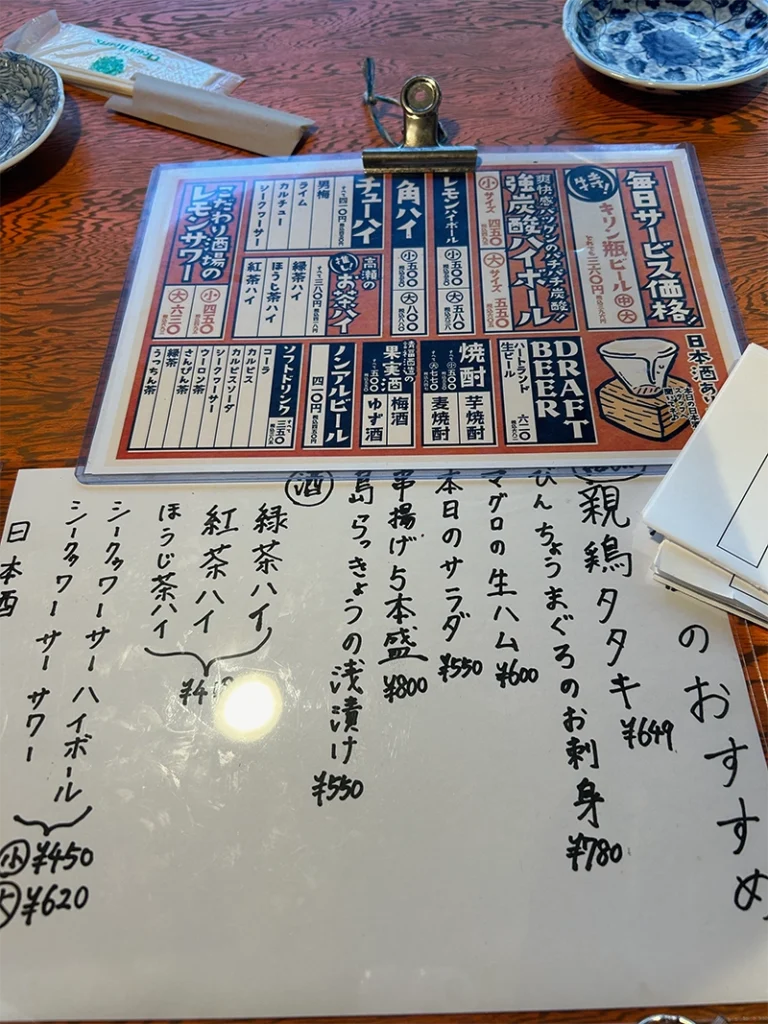 毎日サービス価格!!
特!
キリン瓶ビール 中 大
どれでも 三六〇円
爽快感バツグンのバチバチ炭酸!!
強炭酸ハイボール
小サイズ 四五〇
大サイズ 五五〇
レモンハイボール
小 五〇〇
大 五八〇
角ハイ
小 五〇〇
大 八〇〇
チューハイ
すべて 四一〇円
男梅
ライム
カルチュー
シークワーサー
高瀬の
推し!
お茶ハイ
すべて 三八〇円
緑茶ハイ
ほうじ茶ハイ
紅茶ハイ
こだわり酒場の
レモンサワー
小 四五〇
大 六三〇
日本酒あり
DRAFT
BEER
ハートランド
生ビール
六二〇
焼酎
すべて
小 五〇〇
大 七七〇
芋焼酎
麦焼酎
果実酒
すべて 五〇〇
梅酒
ゆず酒
ノンアルビール
四一〇
ソフトドリンク
すべて 三五〇
コーラ
カルピス
カルピスソーダ
シークワーサー
ウーロン茶
さんぴん茶
緑茶
うっちん茶
のおすすめ
親鶏タタキ
¥649
びんちょうまぐろのお刺身
¥780
マグロの生ハム
¥600
本日のサラダ
¥550
串揚げ5本盛
¥800
島らっきょうの浅漬け
¥550
酒
緑茶ハイ
紅茶ハイ
ほうじ茶ハイ
シークヮーサーハイボール
シークヮーサーサワー
小 ¥450
大 ¥620
日本酒